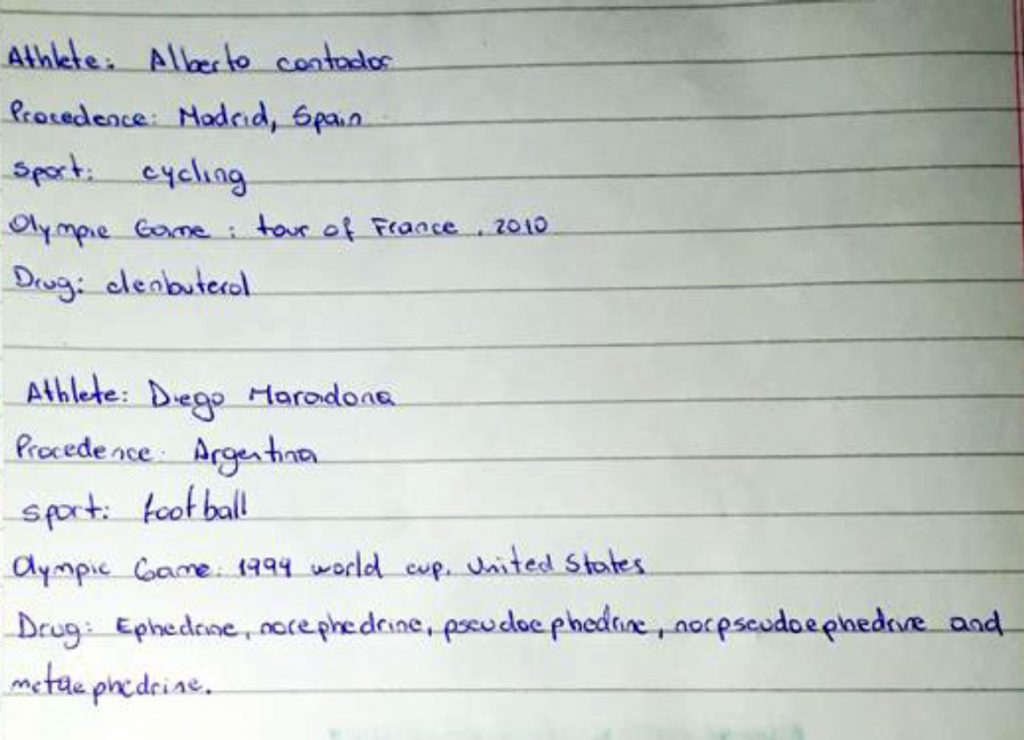 Athlete: Alberto contador
Procedence: Madrid, Spain
sport: cycling
Olympic Game: tour of France, 2010
Drug: clenbuterol
Athlete: Diego Maradona
Procedence: Argentina
sport: football
Olympic Game: 1994 world cup. United States
Drug: Ephedrine, norephedrine, pseudoephedrine, norpseudoephedrine and
metaephedrine.